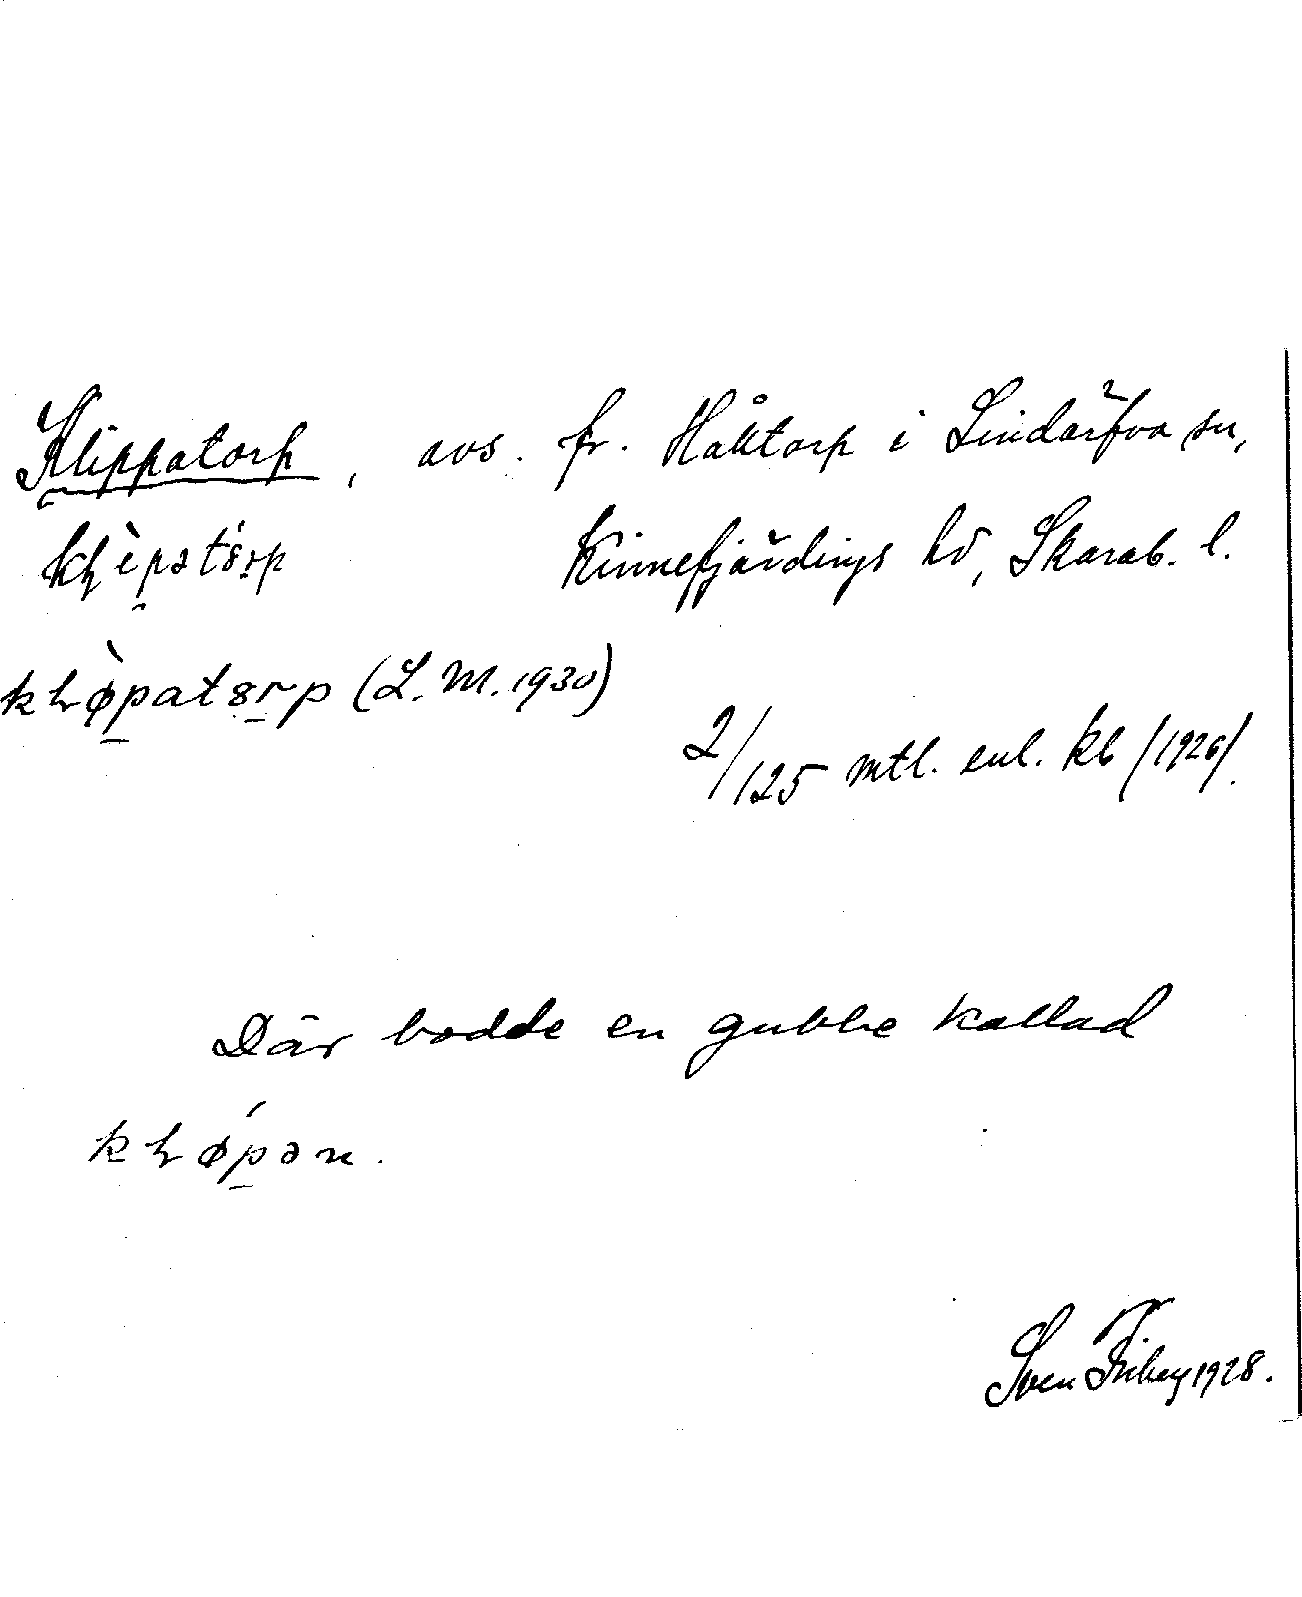 Klippatorp, avs. fr. Håktorp i Lindärfva sn,
Kinnefjärdings hd, Skarab. l.
(L. M. 1930)
2/125 mtl. enl. kb /1926/.
Där bodde en gubbe kallad
Sven Friberg 1928.